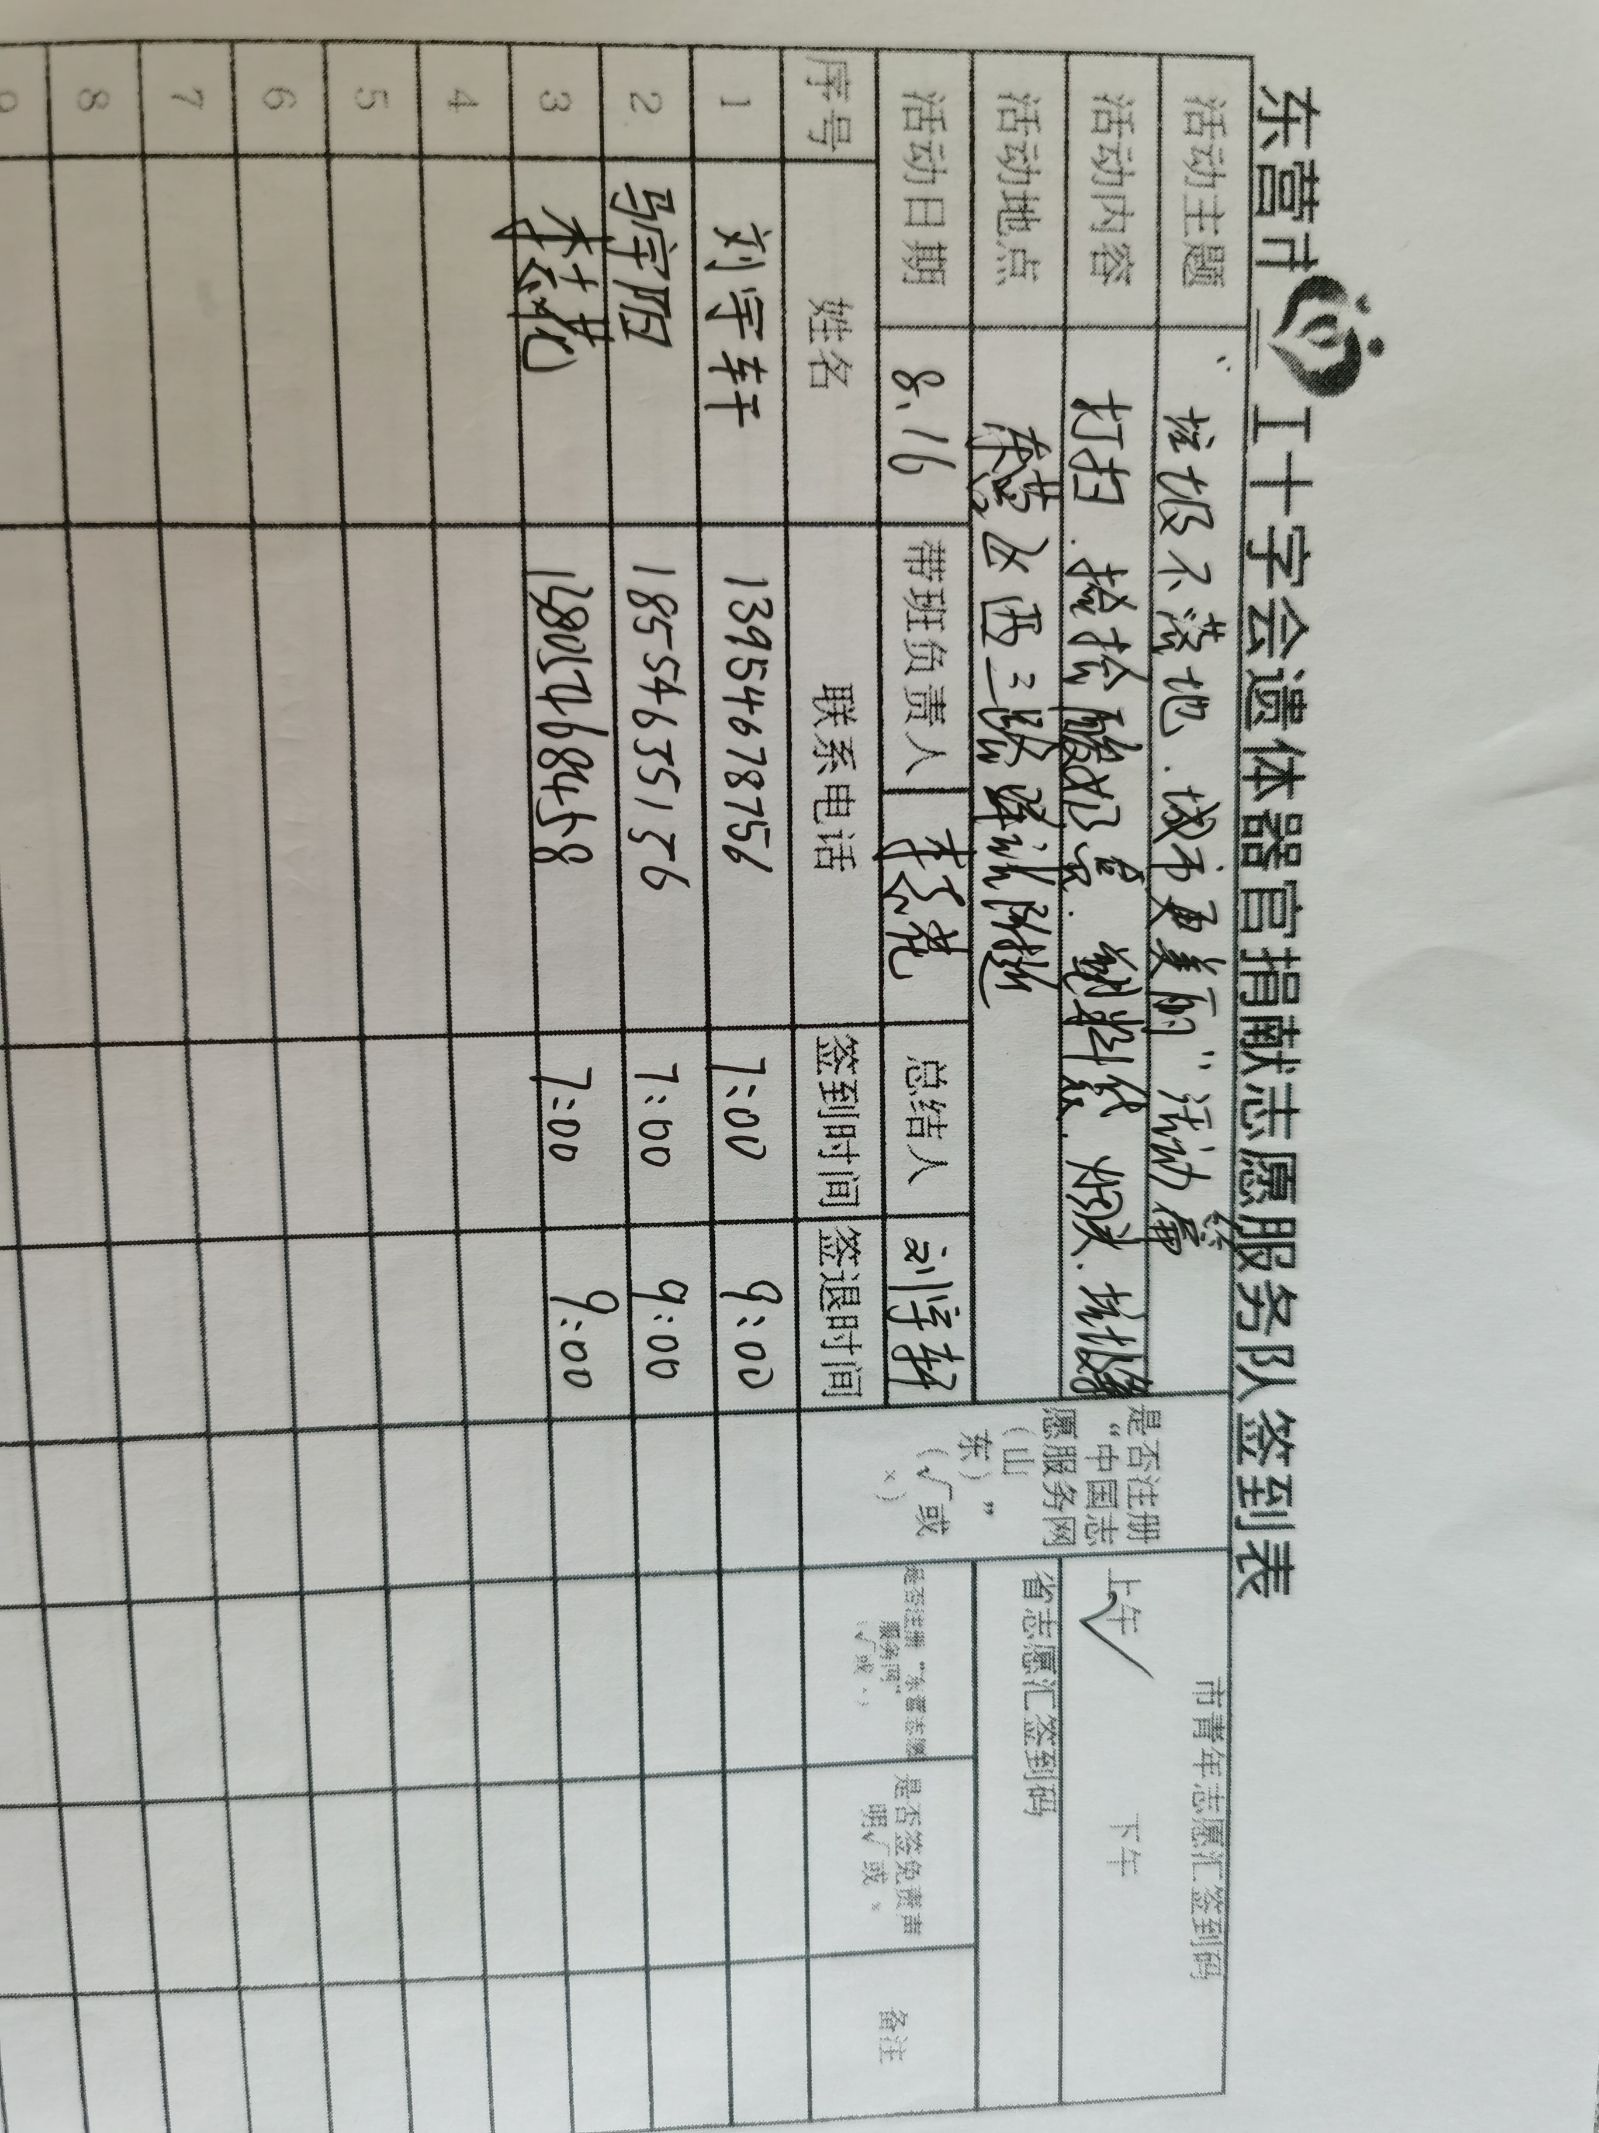 东营市 工十字会遗体器官捐献志愿服务队签到表
活动主题 "垃圾不落地.城市更美丽"活动
市青年志愿汇签到码
活动内容 打扫.捡拾 塑料袋.垃圾
上午√ 下午
活动地点 西三路
省志愿汇签到码
是否注册
"中国志
愿服务网
(山
东)"
(√或
×)
活动日期 8.16 带班负责人 总结人 刘宇轩
是否注册"东营志愿
服务网"
(√或×)
是否签免责声
明√或×
备注
序号 姓名 联系电话 签到时间 签退时间
1 刘宇轩 13954678756 7:00 9:00
2 马宇阳 18554635156 7:00 9:00
3 7:00 9:00
4
5
6
7
8
9